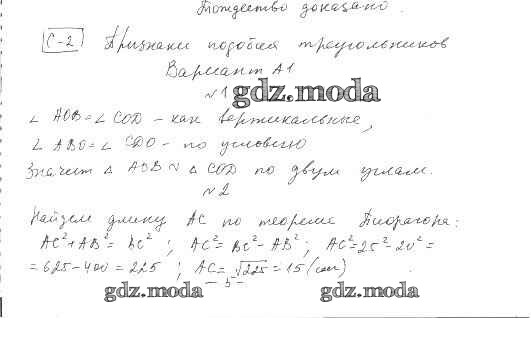 Тождество доказано.
С-2 Признаки подобия треугольников
Вариант А1
№1
gdz.moda
∠ AOB = ∠ COD - как вертикальные,
∠ ABO = ∠ CDO - по условию
Значит △ AOB ~ △ COD по двум углам.
№2
Найдем длину AC по теореме Пифагора:
AC² + AB² = BC² ; AC² = BC² - AB² ; AC² = 25² - 20² =
= 625 - 400 = 225 ; AC = √225 = 15 (см)
- 5 -
gdz.moda gdz.moda